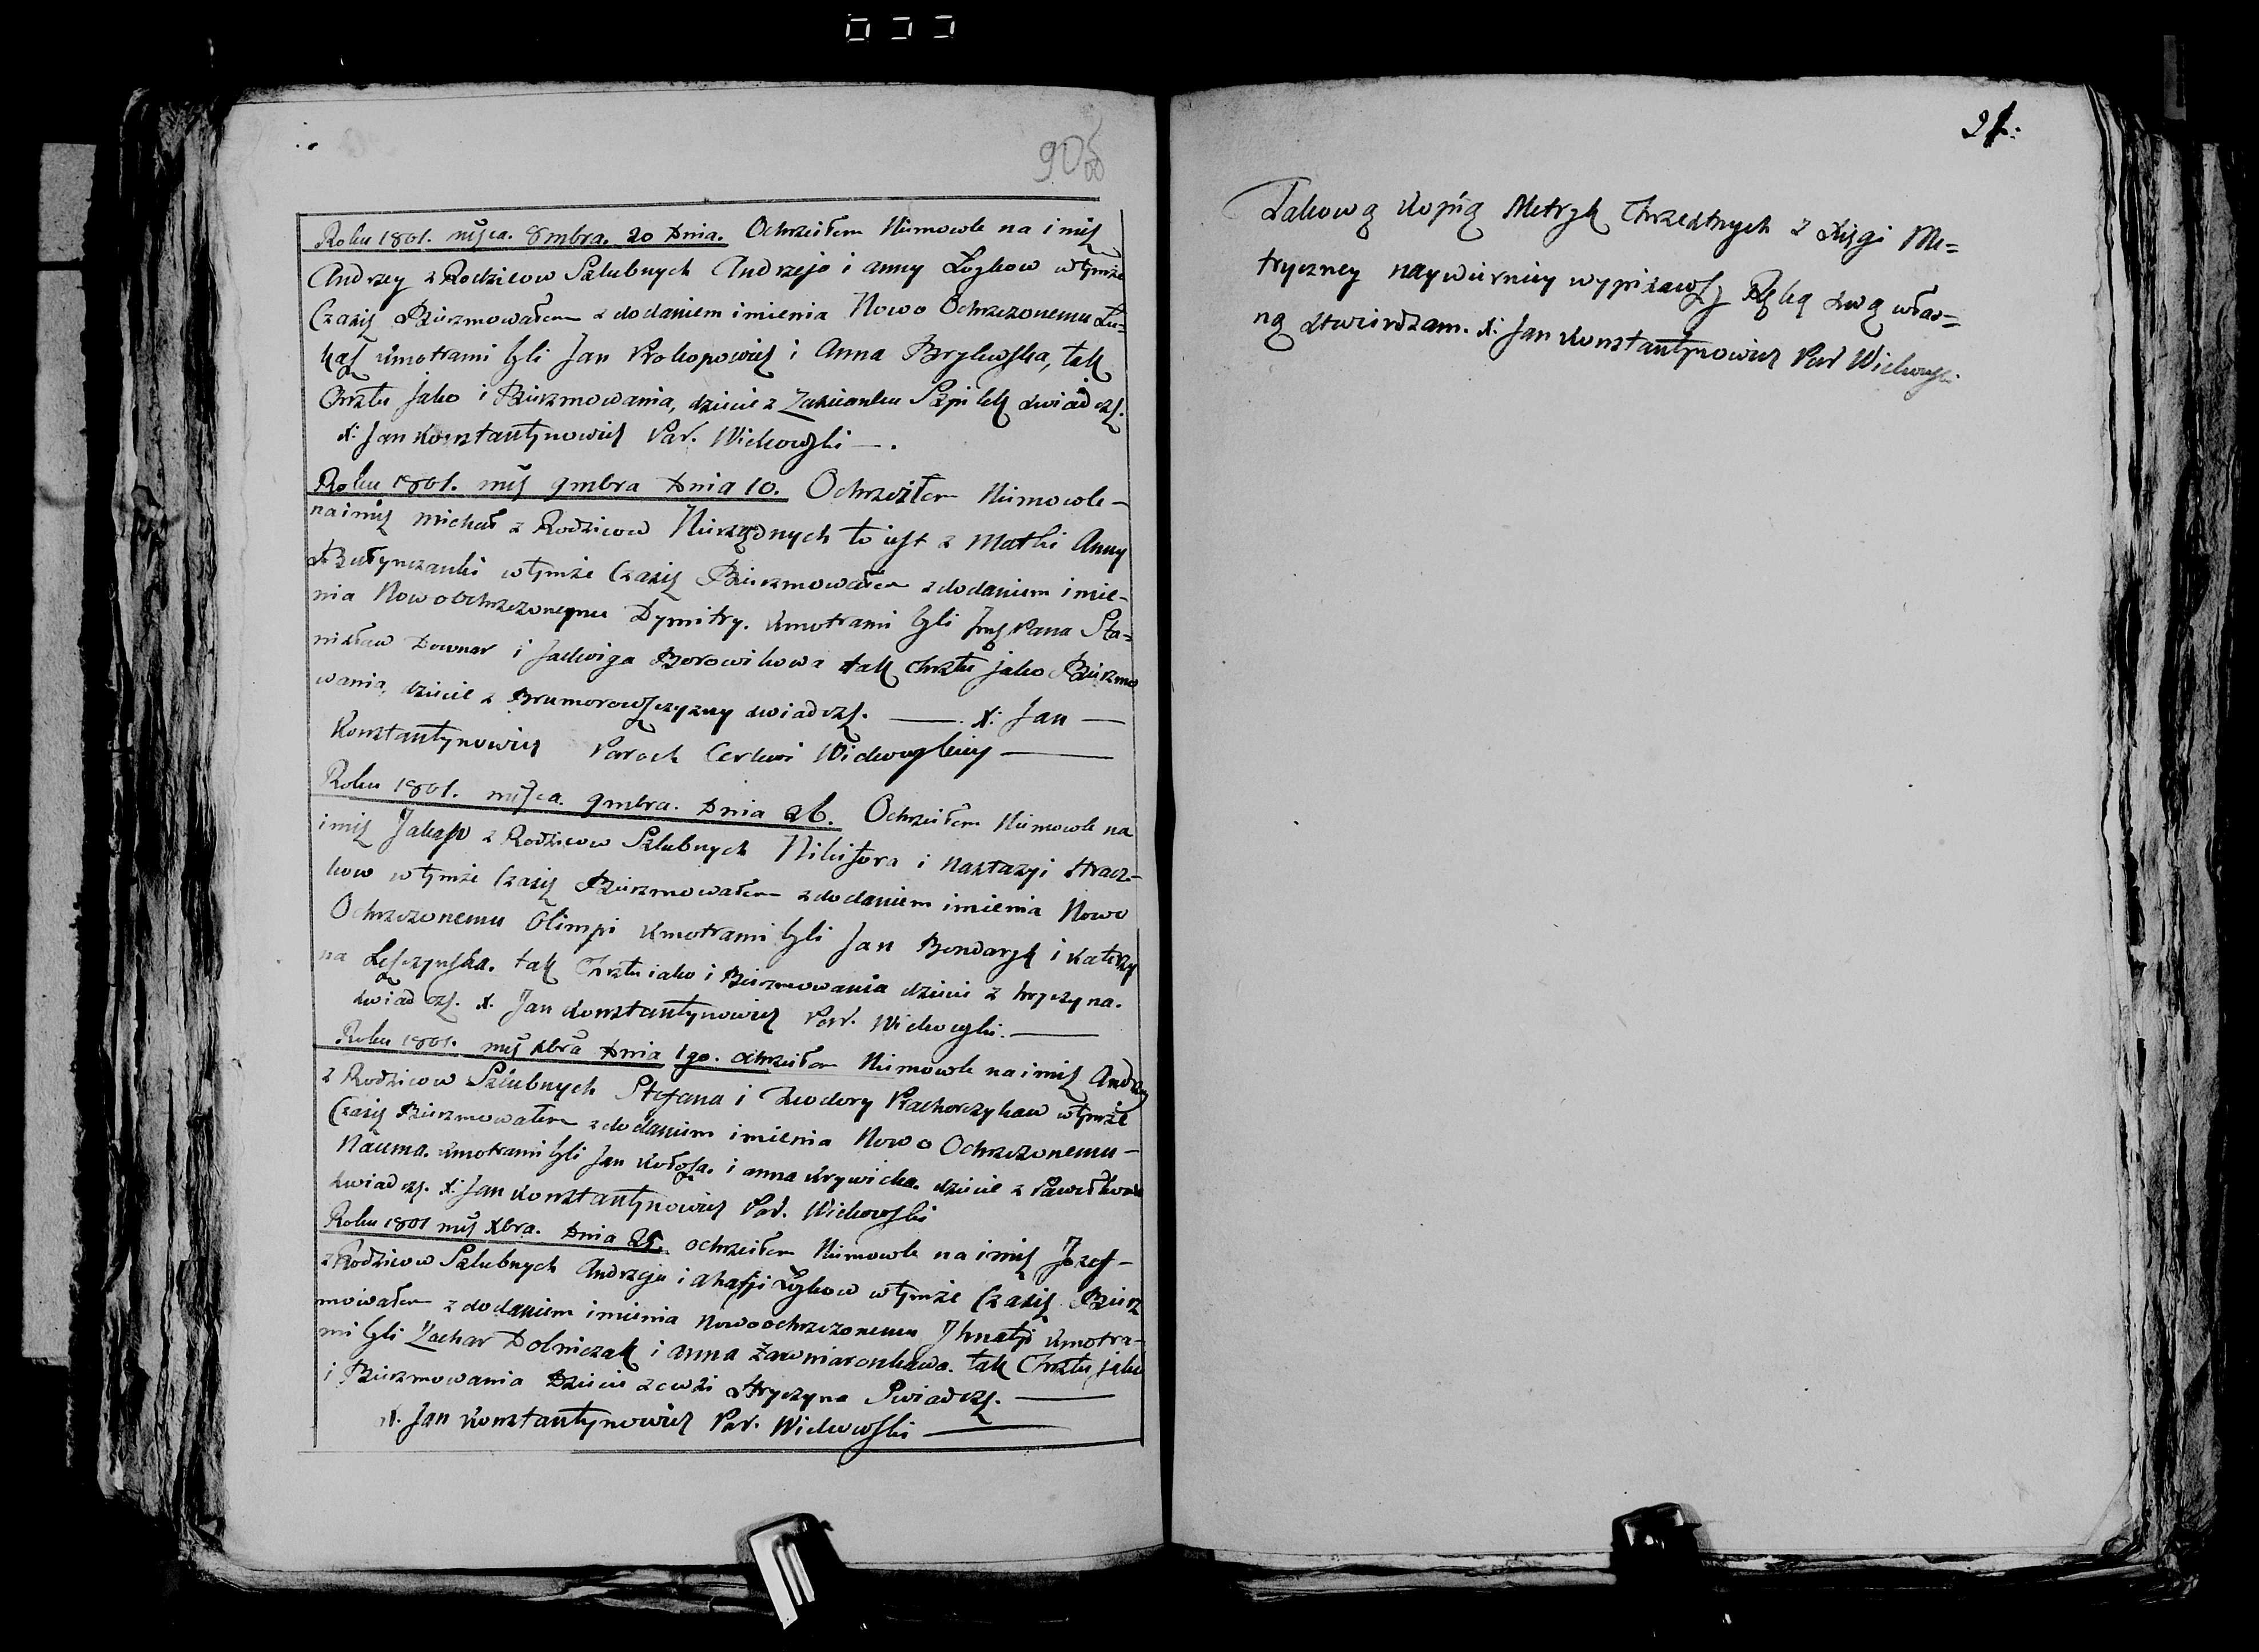 905
Roku 1801. miſca. 8mbra. 20 Dnia. Ochrzciłem Niemowle na imię
Andrzey z Rodzicow Szlubnych Andrzeja i Anny Łozkow w tymże
Czasię Bierzmowałem z dodaniem imienia Nowo Ochrzczonemu Łu=
kaſz Kmotrami byli Jan Prokopowicz i Anna Brylewſka, tak
Chrztu jako i Bierzmowania, dziecie z Zascianku Szpilek swiadczę.
X: Jan Konstantynowicz Par. Wickowſki —.
Roku 1801. mię 9mbra Dnia 10. Ochrzciłem Niemowle –
na imię Michał z Rodzicow Nierządnych to ieſt z Matki Anny
w tymże Czasię Bierzmowałem z dodaniem imie-
nia Nowoochrzczonemu Dymitry. Kmotrami byli Pana Sta=
nisław Downar i Jadwiga Borowikowa tak Chrztu jako Bierzmo
wania, dziecie z Brumorowſzczyzny swiadczę. — X: Jan —
Konstantynowicz Paroch Cerkwi Wickowſkiey —
Roku 1801. miſca. 9mbra. Dnia 26. Ochrzciłem Niemowle na
imię Jakub z Rodzicow Szlubnych Nikifora i Nastazyi Stracz-
kow w tymże Czasię Bierzmowałem z dodaniem imienia Nowo
Ochrzczonemu Olimpi Kmotrami byli Jan Bondaryk i Katerzy
na Leſzczynſka. tak Chrztu iako i Bierzmowania dziecie z Hryczyna.
swiadczę. X. Jan Konstantynowicz Par. Wickowſki. —
Roku 1801. mię Xbra Dnia 1go. ochrzciłem Niemowle na imię Andrzey
z Rodzicow Szlubnych Stefana i Teodory Prachorczykow w tymże
Czasię Bierzmowałem z dodaniem imienia Nowo Ochrzczonemu –
Nauma. Kmotrami byli Jan Kołoſza. i Anna Krywicka. dziecie z
swiadczę. X: Jan Konstantynowicz Par. Wickowſki
Roku 1801 mię Xbra. Dnia 25. ochrzciłem Niemowle na imię Jozef –
z Rodzicow Szlubnych Andrzeja i Ahafji Łozkow w tymże Czasię Bierz
mowałem z dodaniem imienia Nowoochrzczonemu Jhnatji Kmotra-
mi byli Zachar Dolniczak i Anna Zawniaronkowa. tak Chrztu jako
i Bierzmowania Dziecie ze wsi Hryczyna Swiadczę. —
X. Jan Konstantynowicz Par. Wickowſki —
21:
Takową Kopią Metryk Chrzestnych z Xięgi Me=
tryczney naywierniey wypisawſzy Ręką swą włas=
ną stwierdzam. X: Jan Konstantynowicz Par Wickowſki